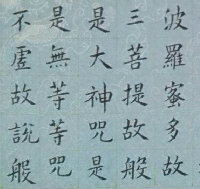 波羅蜜多故
三菩提故般
是大神咒是
是無等等咒
不虛故說般